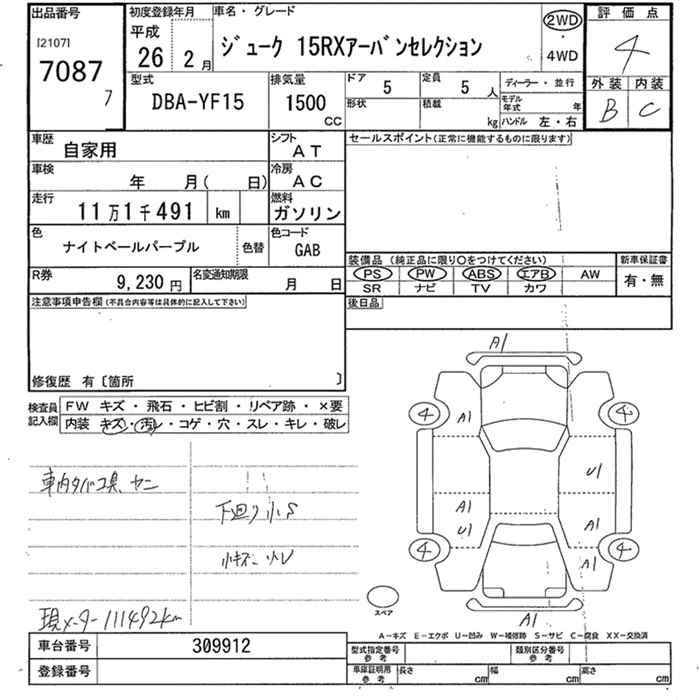 出品番号
[2107]
7087
7
初度登録年月
平成
26年 2月
車名・グレード
ジューク 15RXアーバンセレクション
2WD
・
4WD
評価点
4
外装 内装
B C
型式
DBA-YF15
排気量
1500
CC
ドア
5
定員
5人
形状
積載
kg
ディーラー・並行
モデル年式 年
ハンドル 左・右
車歴
自家用
シフト
AT
車検
年 月( 日)
冷房
AC
走行
11万1千491 km
燃料
ガソリン
色
ナイトベールパープル
色替
色コード
GAB
R券
9,230円
名変通知期限
月 日
セールスポイント(正常に機能するものに限ります)
装備品 (純正品に限り○をつけてください)
PS PW ABS エアB AW
SR ナビ TV カワ
新車保証書
有・無
後日品
注意事項申告欄(不具合内容等は具体的に記入して下さい)
修復歴 有〔箇所 〕
検査員記入欄
FW キズ・飛石・ヒビ割・リペア跡・×要
内装 キズ・汚レ・コゲ・穴・スレ・キレ・破レ
車内タバコ臭、ヤニ
下回り小S
小キズ、小U
現メーター111492km
A1
4
A1
4
U1
A1
U1
A1
4
A1
4
A1
スペア
A-キズ E-エクボ U-凹み W-補修跡 S-サビ C-腐食 XX-交換済
車台番号
309912
登録番号
型式指定番号
参考
類別区分番号
参考
車庫証明用
参考
長さ cm
幅 cm
高さ cm